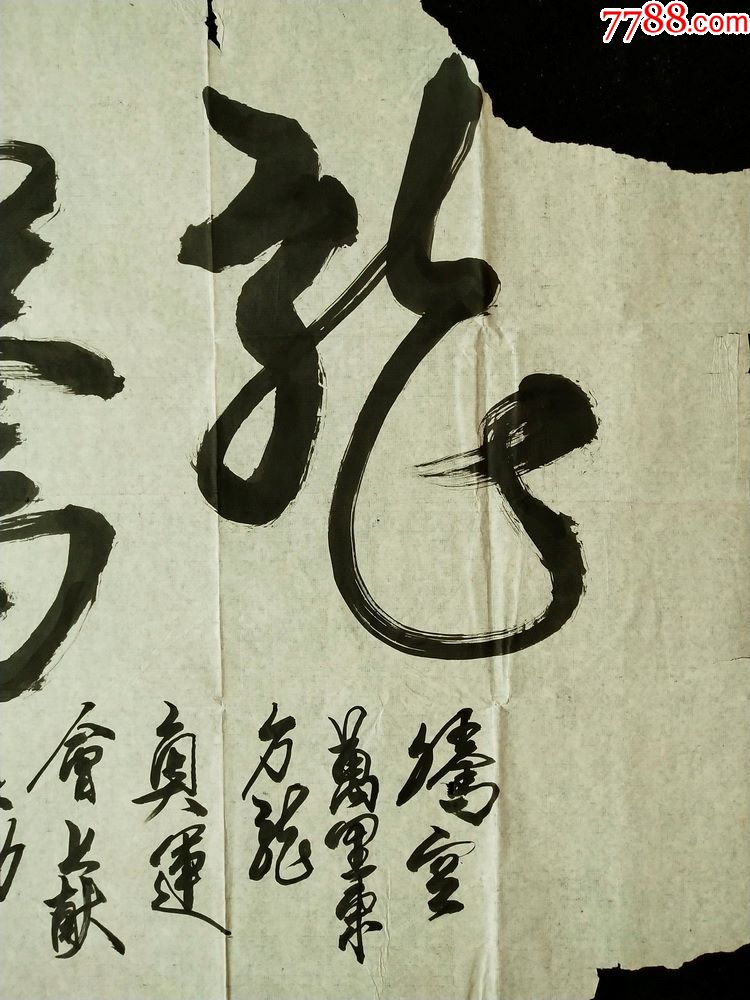 7788.com
龍
騰空
萬里東
方龍
奧運
會上献